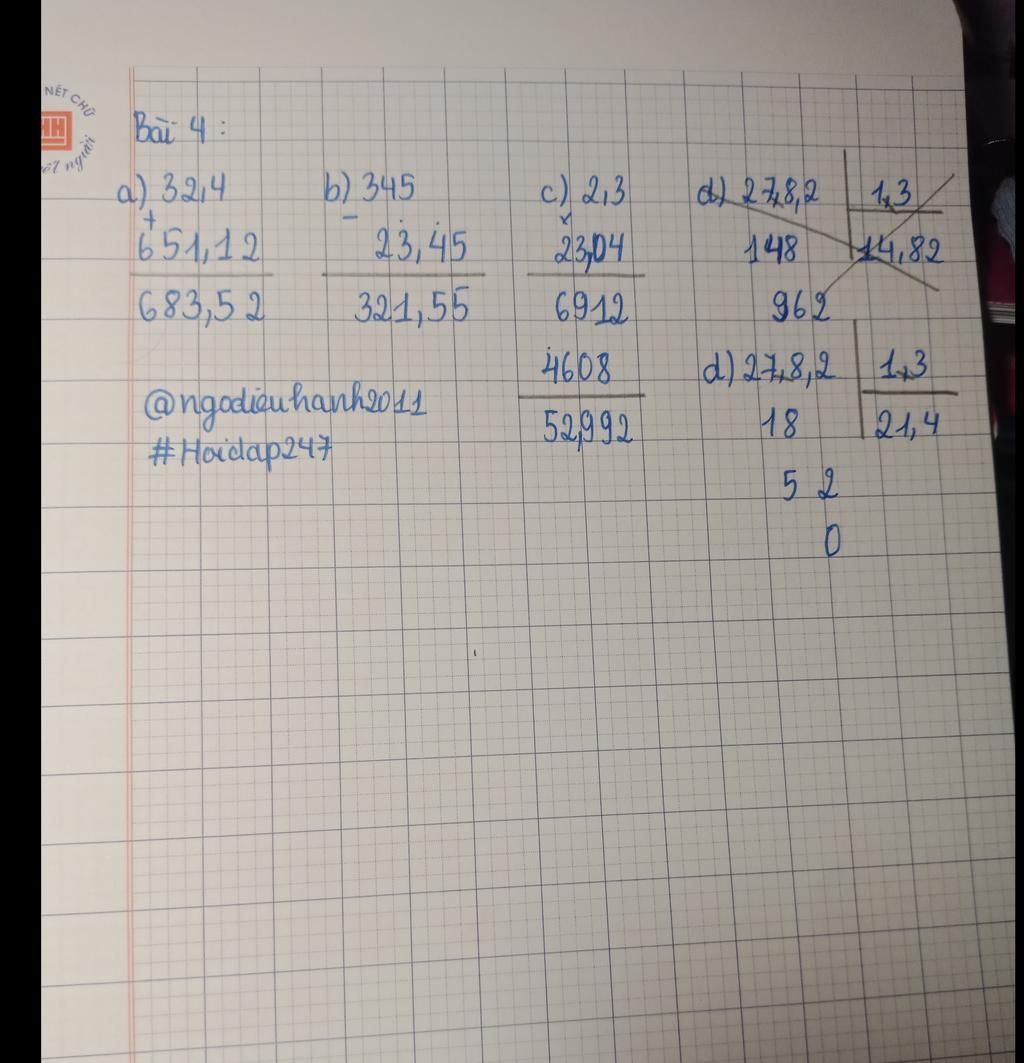 NÉT CHỮ
HH
nết người
Bài 4 :
a) 32,4
+
651,12
683,52
b) 345
−
23,45
321,55
c) 2,3
×
23,04
6912
4608
52,992
d) 27,8,2 | 1,3
148 14,82
962
d) 27,8,2 | 1,3
18 21,4
5 2
0
@ngodieuhanh2011
#Hoidap247